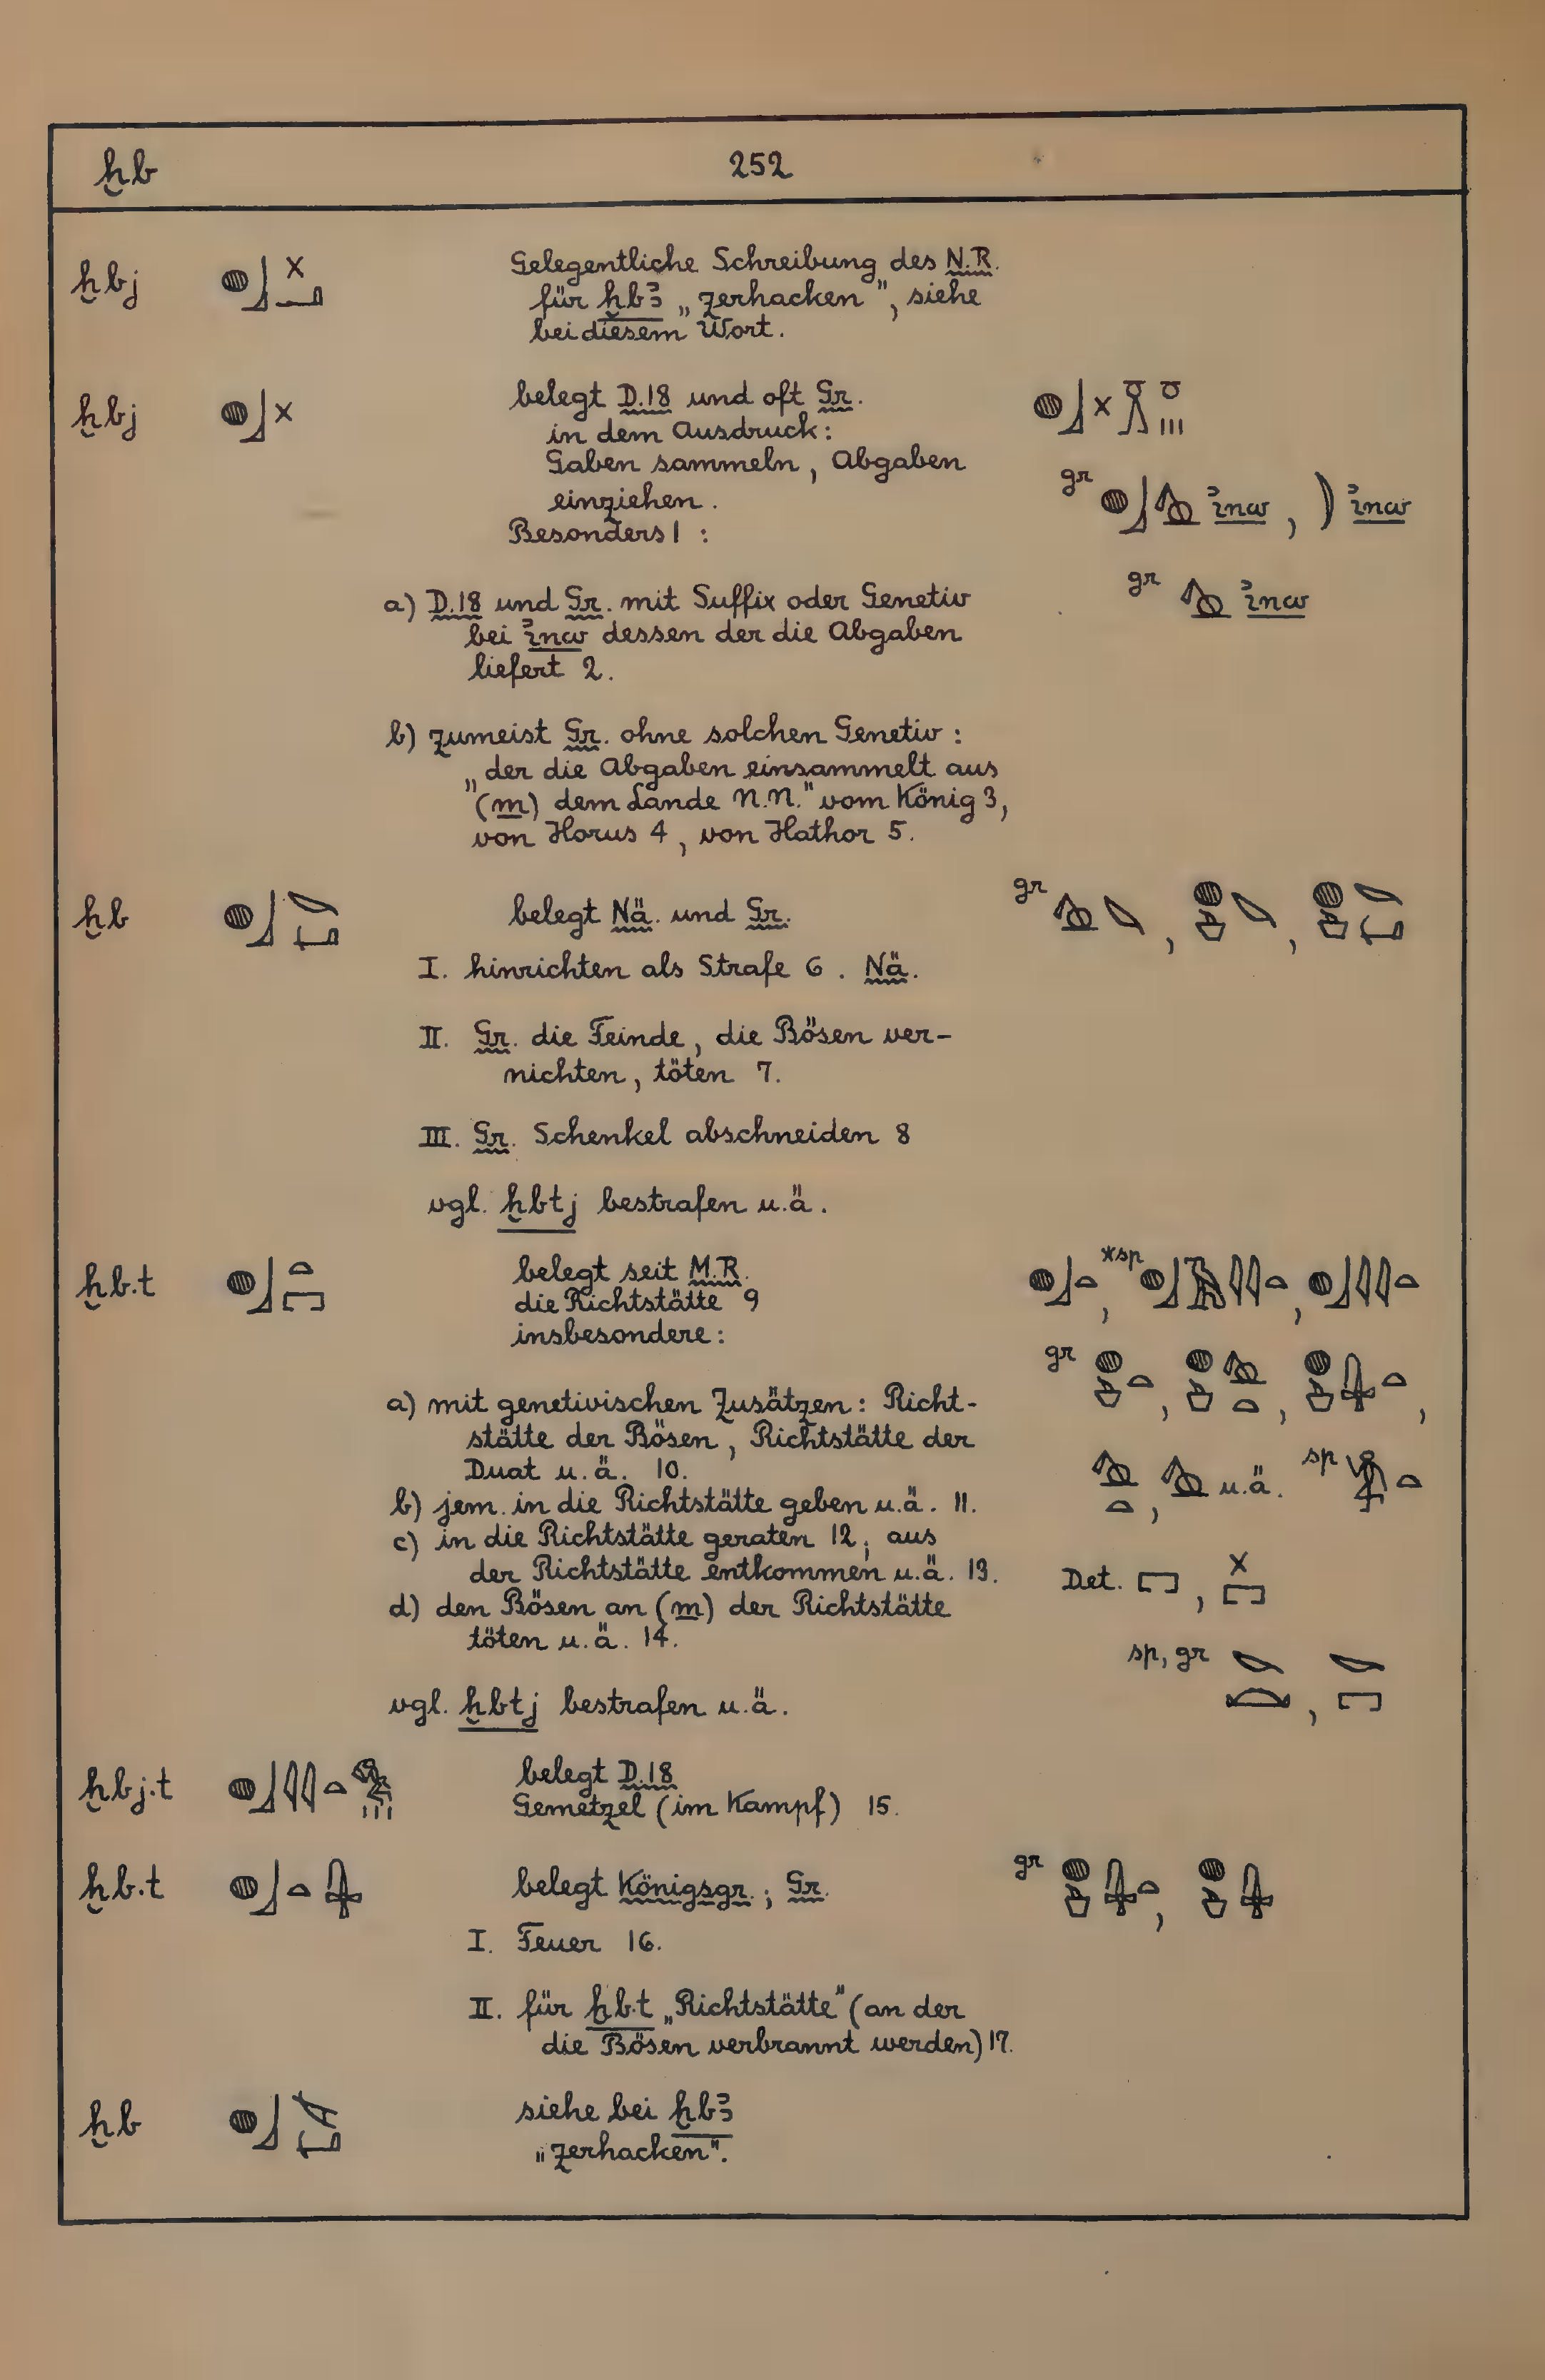 ḫb 252
ḫbj Gelegentliche Schreibung des N.R.
für ḫbꜣ „zerhacken”, siehe
bei diesem Wort.
ḫbj belegt D.18 und oft Gr.
in dem Ausdruck:
Gaben sammeln, Abgaben
einziehen.
gr ꞽnw, ꞽnw
Besonders 1 :
a) D.18 und Gr. mit Suffix oder Genetiv
gr ꞽnw
bei ꞽnw dessen der die Abgaben
liefert 2.
b) zumeist Gr. ohne solchen Genetiv :
„der die Abgaben einsammelt aus
(m) dem Lande N.N.” vom König 3,
von Horus 4, von Hathor 5.
ḫb belegt Nä. und Gr. gr
I. hinrichten als Strafe 6. Nä.
II. Gr. die Feinde, die Bösen ver-
nichten, töten 7.
III. Gr. Schenkel abschneiden 8
vgl. ḫbtj bestrafen u.ä.
ḫb.t belegt seit M.R. *sp
die Richtstätte 9
insbesondere:
gr
a) mit genetivischen Zusätzen: Richt-
stätte der Bösen, Richtstätte der
Duat u.ä. 10.
u.ä. sp
b) jem. in die Richtstätte geben u.ä. 11.
c) in die Richtstätte geraten 12; aus
der Richtstätte entkommen u.ä. 13.
Det.
d) den Bösen an (m) der Richtstätte
töten u.ä. 14.
sp, gr
vgl. ḫbtj bestrafen u.ä.
ḫbj.t belegt D.18
Gemetzel (im Kampf) 15.
ḫb.t belegt Königsgr.; Gr. gr
I. Feuer 16.
II. für ḫb.t „Richtstätte” (an der
die Bösen verbrannt werden) 17.
ḫb siehe bei ḫbꜣ
„zerhacken”.